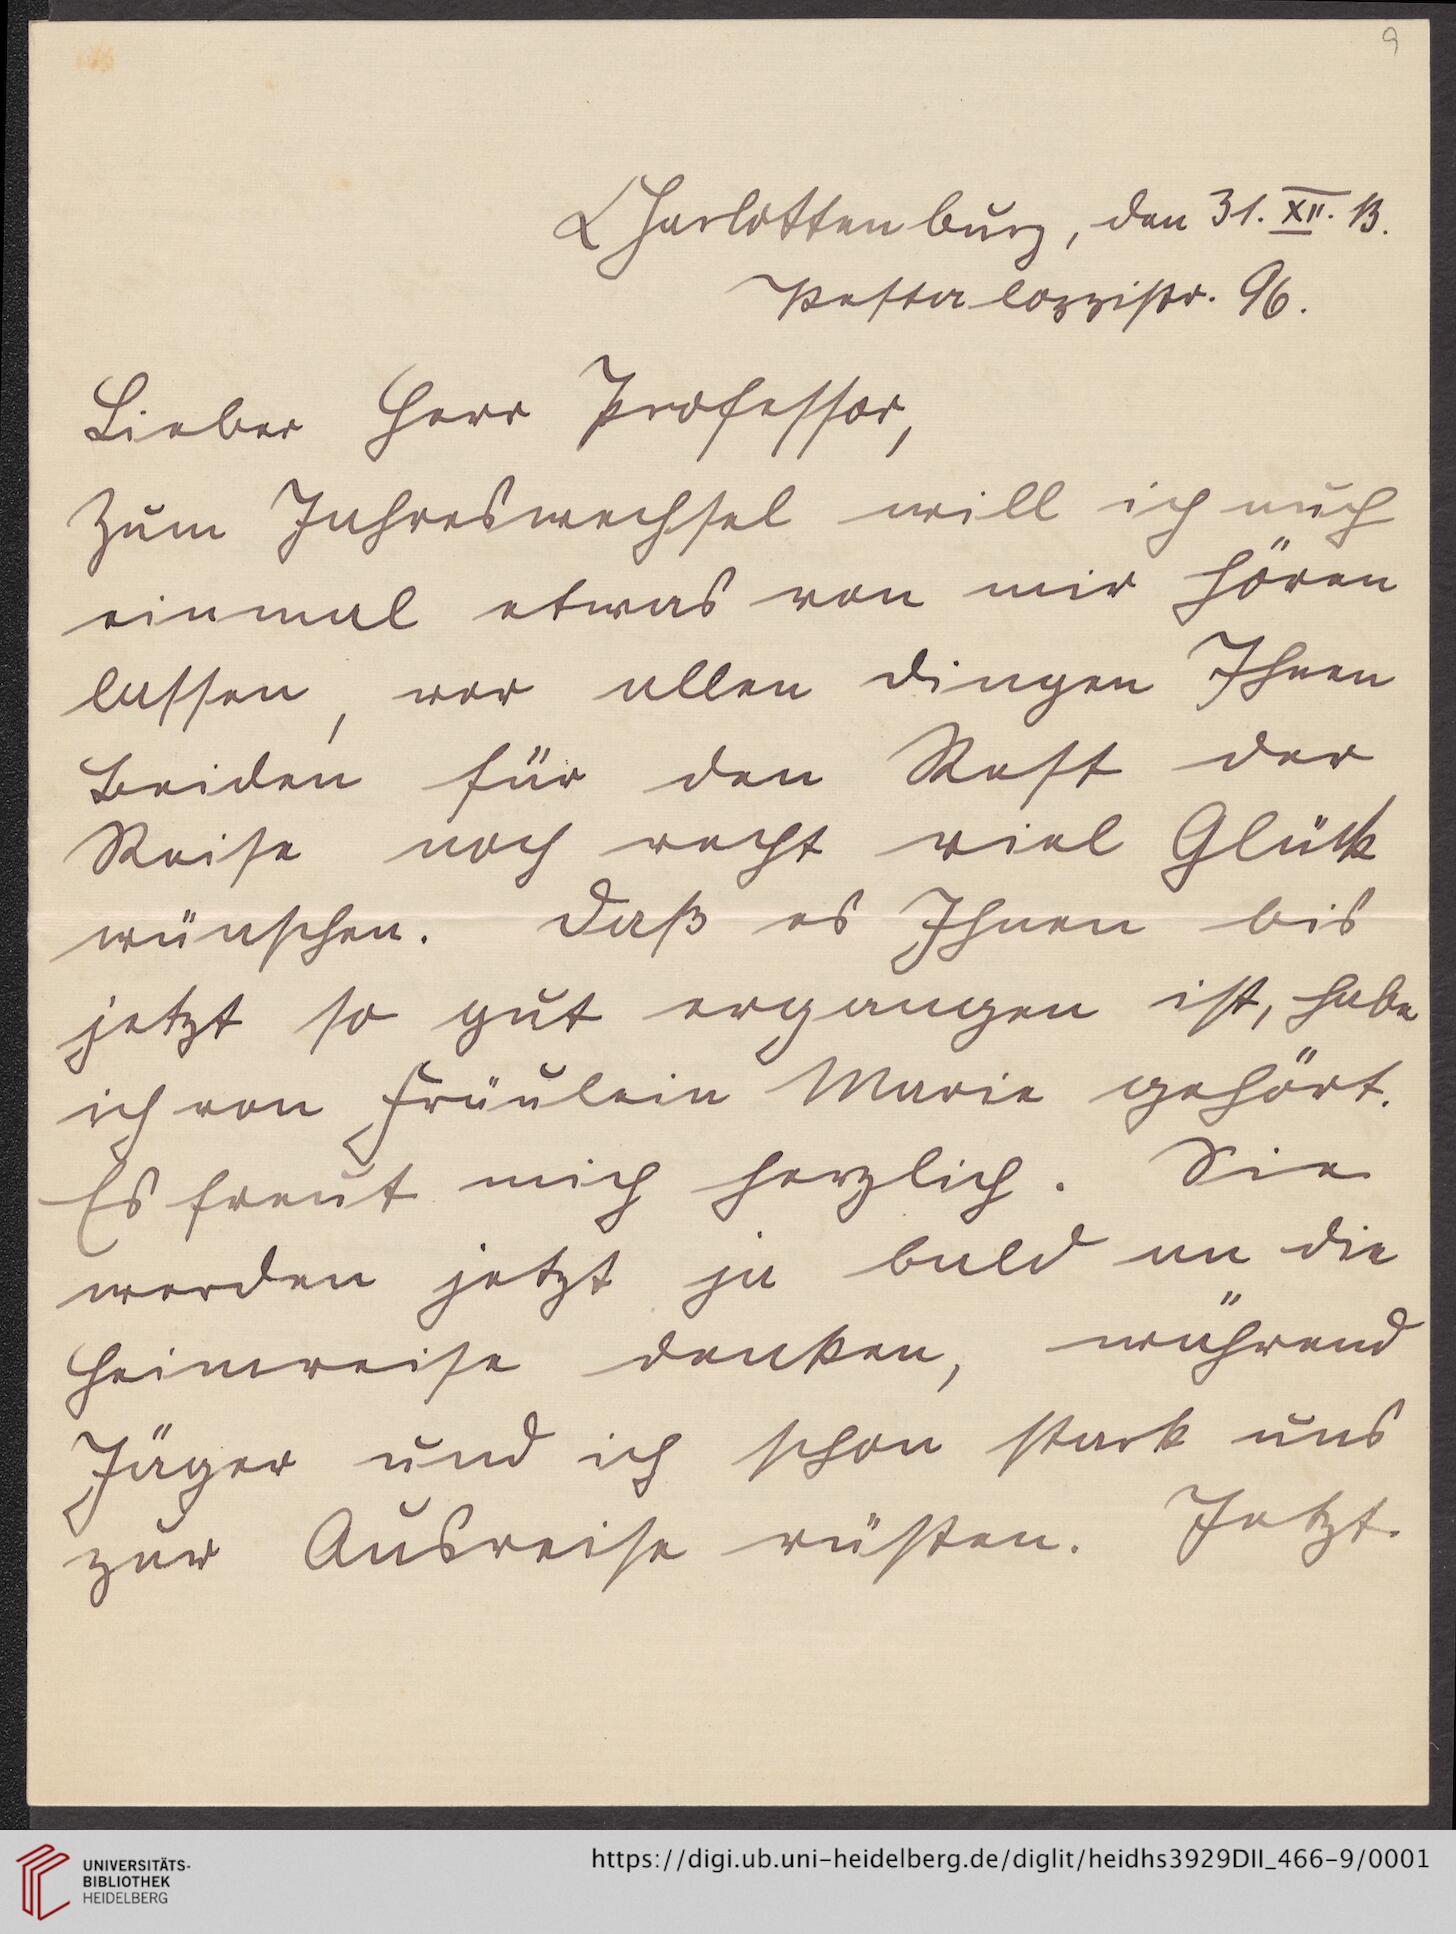 9
Charlottenburg, den 31. XII. 13.
Pestalozzistr. 96.
Lieber Herr Professor,
Zum Jahreswechsel will ich auch
einmal etwas von mir hören
lassen, vor allen dingen Ihnen
Beiden für den Rest der
Reise noch recht viel Glück
wünschen. Daß es Ihnen bis
jetzt so gut ergangen ist, habe
ich von Fräulein Marie gehört.
Es freut mich herzlich. Sie
werden jetzt ja bald an die
Heimreise denken, während
Jäger und ich schon stark uns
zur Ausreise rüsten. Jetzt
UNIVERSITÄTS-
BIBLIOTHEK
HEIDELBERG
https://digi.ub.uni-heidelberg.de/diglit/heidhs3929DII_466-9/0001